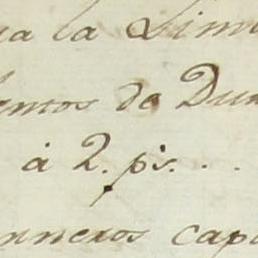 ua la Lim
entos de Dur
à 2. p.s . .
nnexos capa